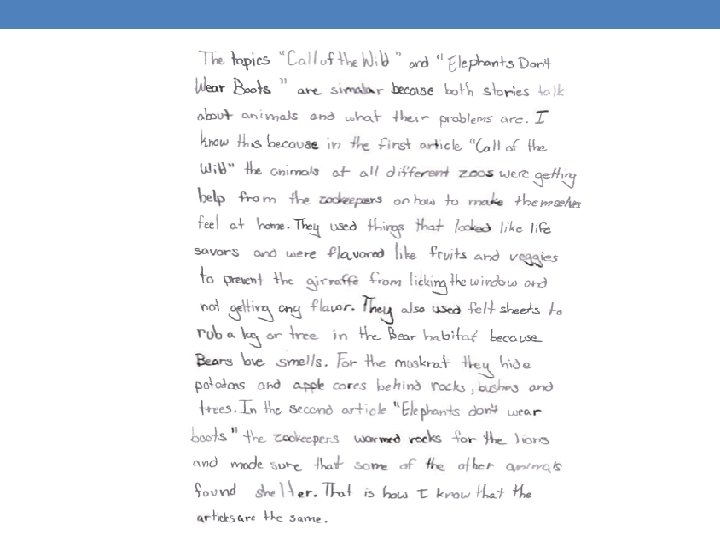 The topics "Call of the Wild" and "Elephants Don't
Wear Boots" are simalar becaise both stories talk
about animals and what their problems are. I
know this because in the first article "Call of the
Wild" the animals at all different zoos were getting
help from the zookeepers on how to make themselves
feel at home. They used things that looked like life
savors and were flavored like fruits and veggies
to prevent the girraffe from licking the window and
not getting any flavor. They also used felt sheets to
rub a log or tree in the Bear habitat because
Bears love smells. For the muskrat they hide
potatoas and apple cores behind rocks, bushes and
trees. In the second article "Elephants don't wear
boots" the zookeepers warmed rocks for the lions
and made sure that some of the other animals
found shelter. That is how I know that the
articles are the same.